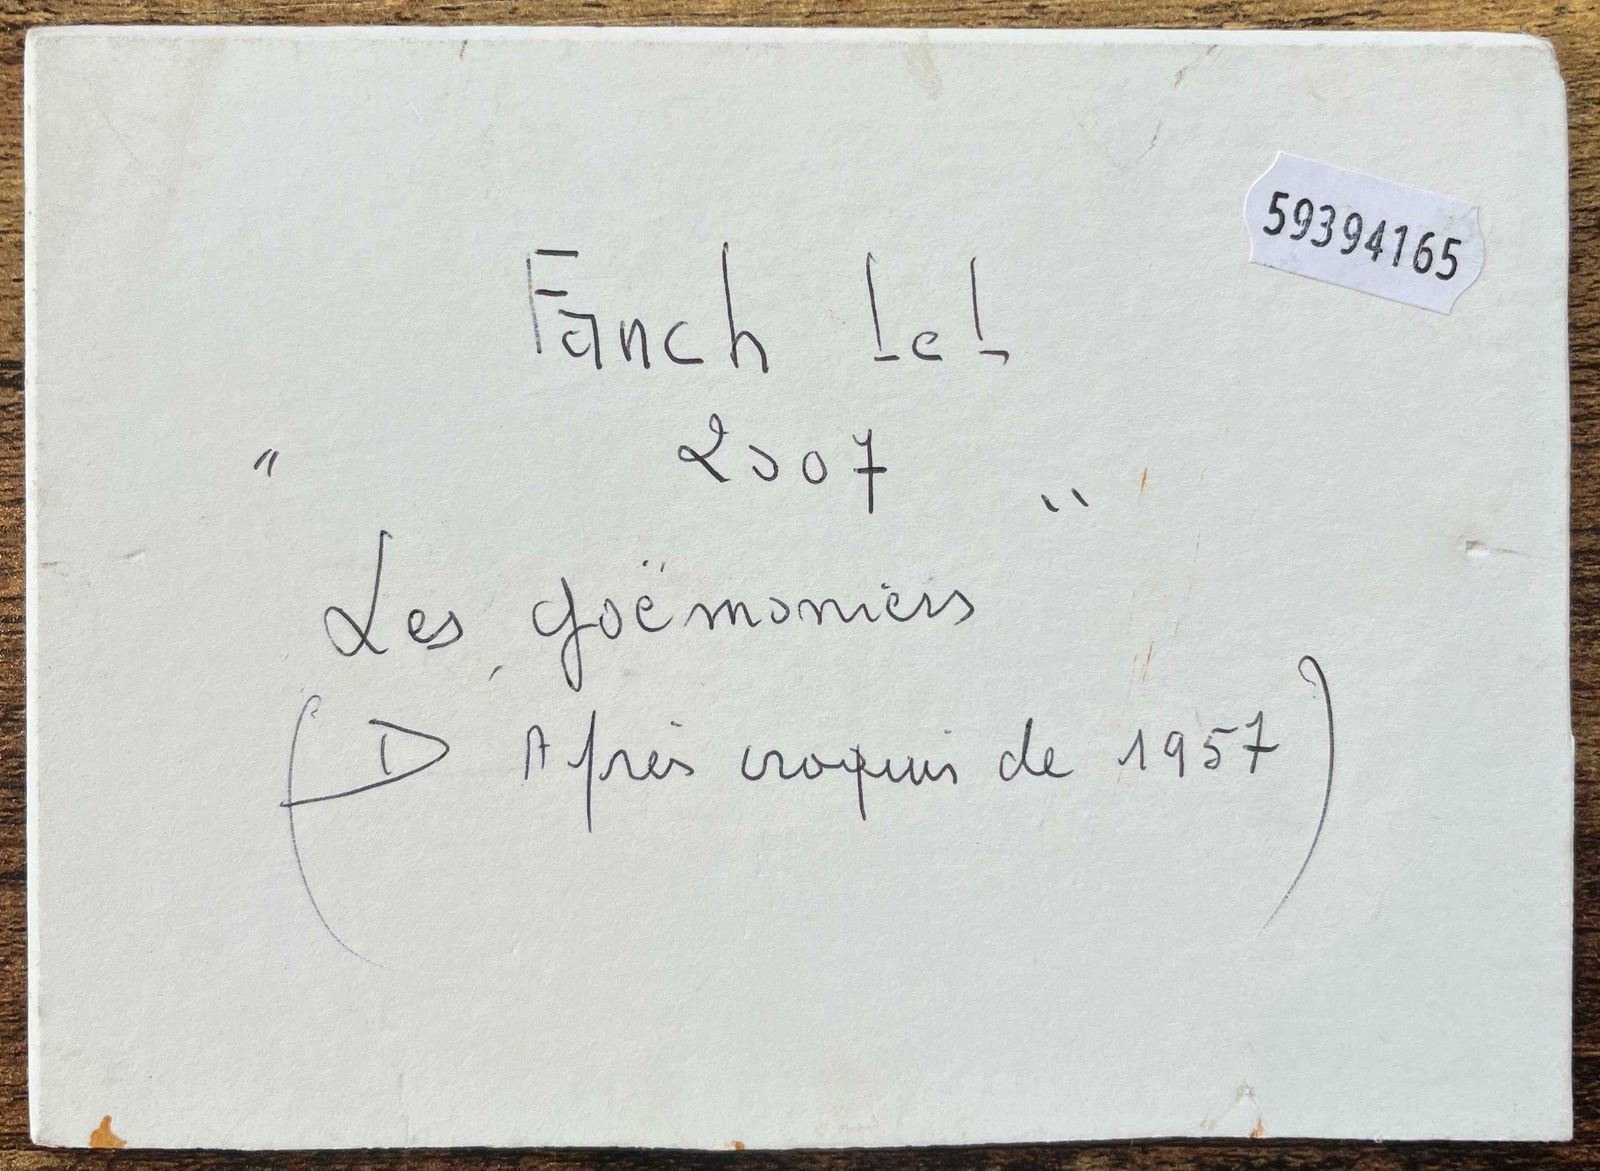 59394165
Fanch Lel
2007
"                    "
Les goëmoniers
(D Après croquis de 1957)